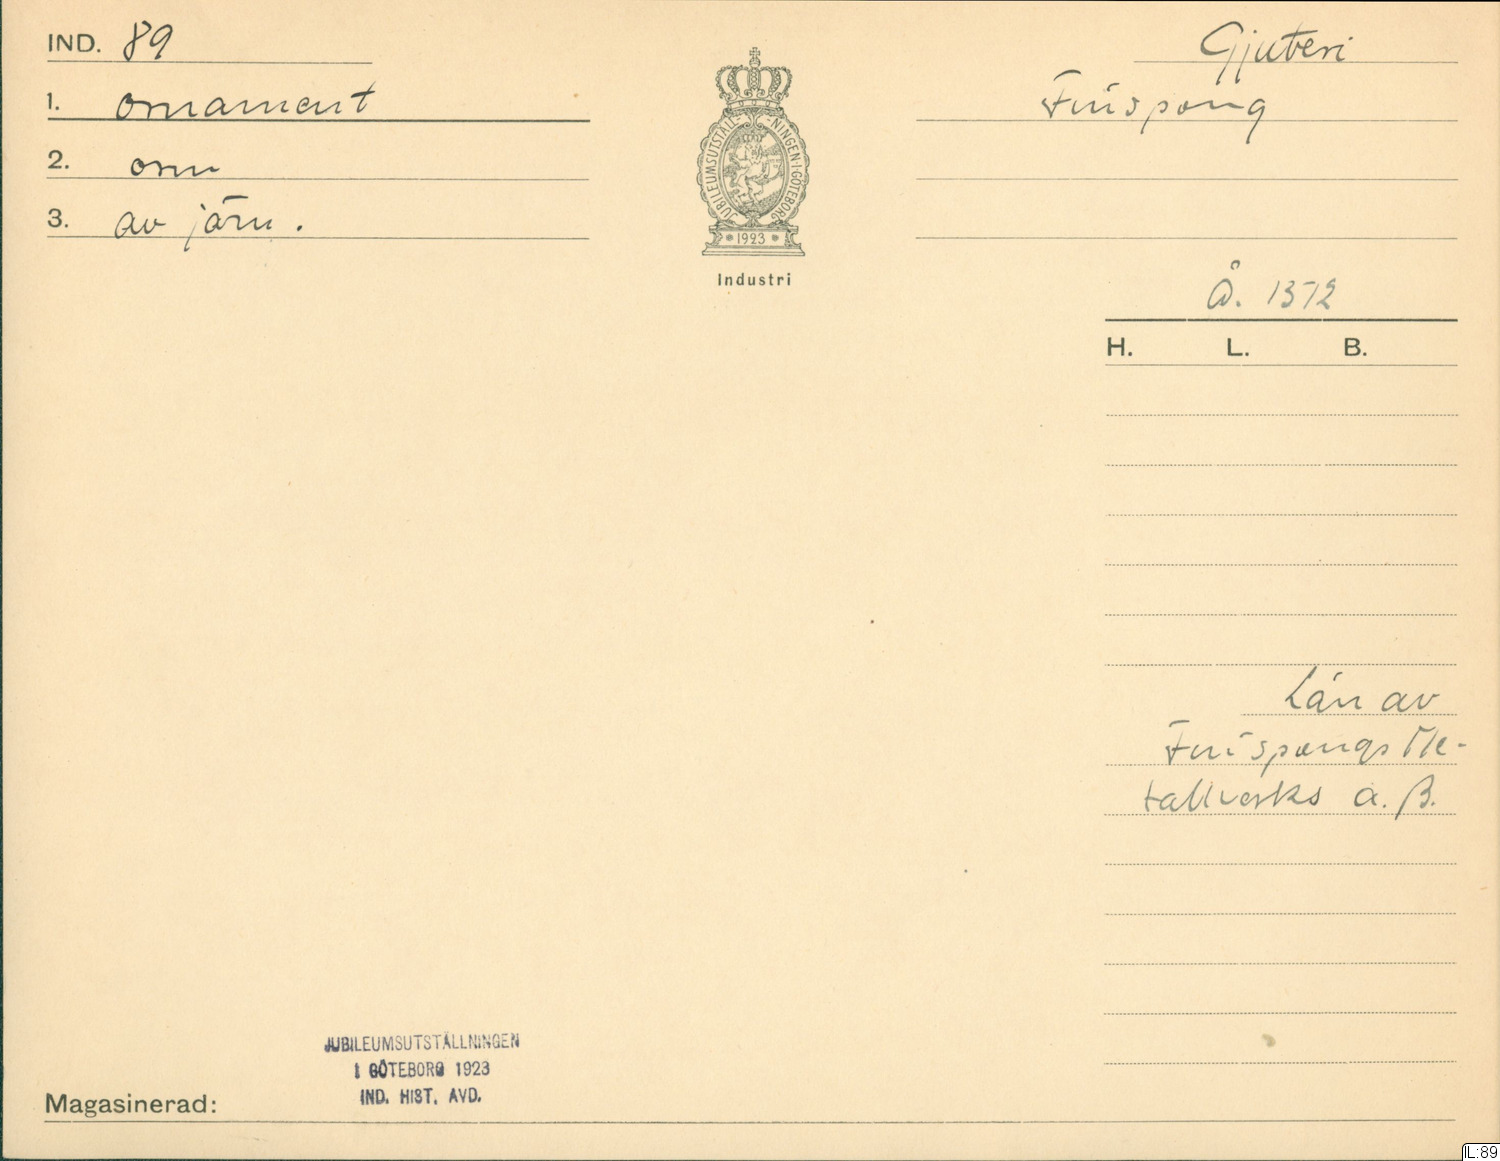 IND. 89
1. ornament
2. orm
3. av järn.
JUBILEUMSUTSTÄLL-NINGEN·I·GÖTEBORG
1923
Industri
Gjuteri
Finspong
Å. 1372
H. L. B.
Lån av
Finspongs Me-
tallverks A.B.
JUBILEUMSUTSTÄLLNINGEN
I GÖTEBORG 1923
IND. HIST. AVD.
Magasinerad:
IL:89